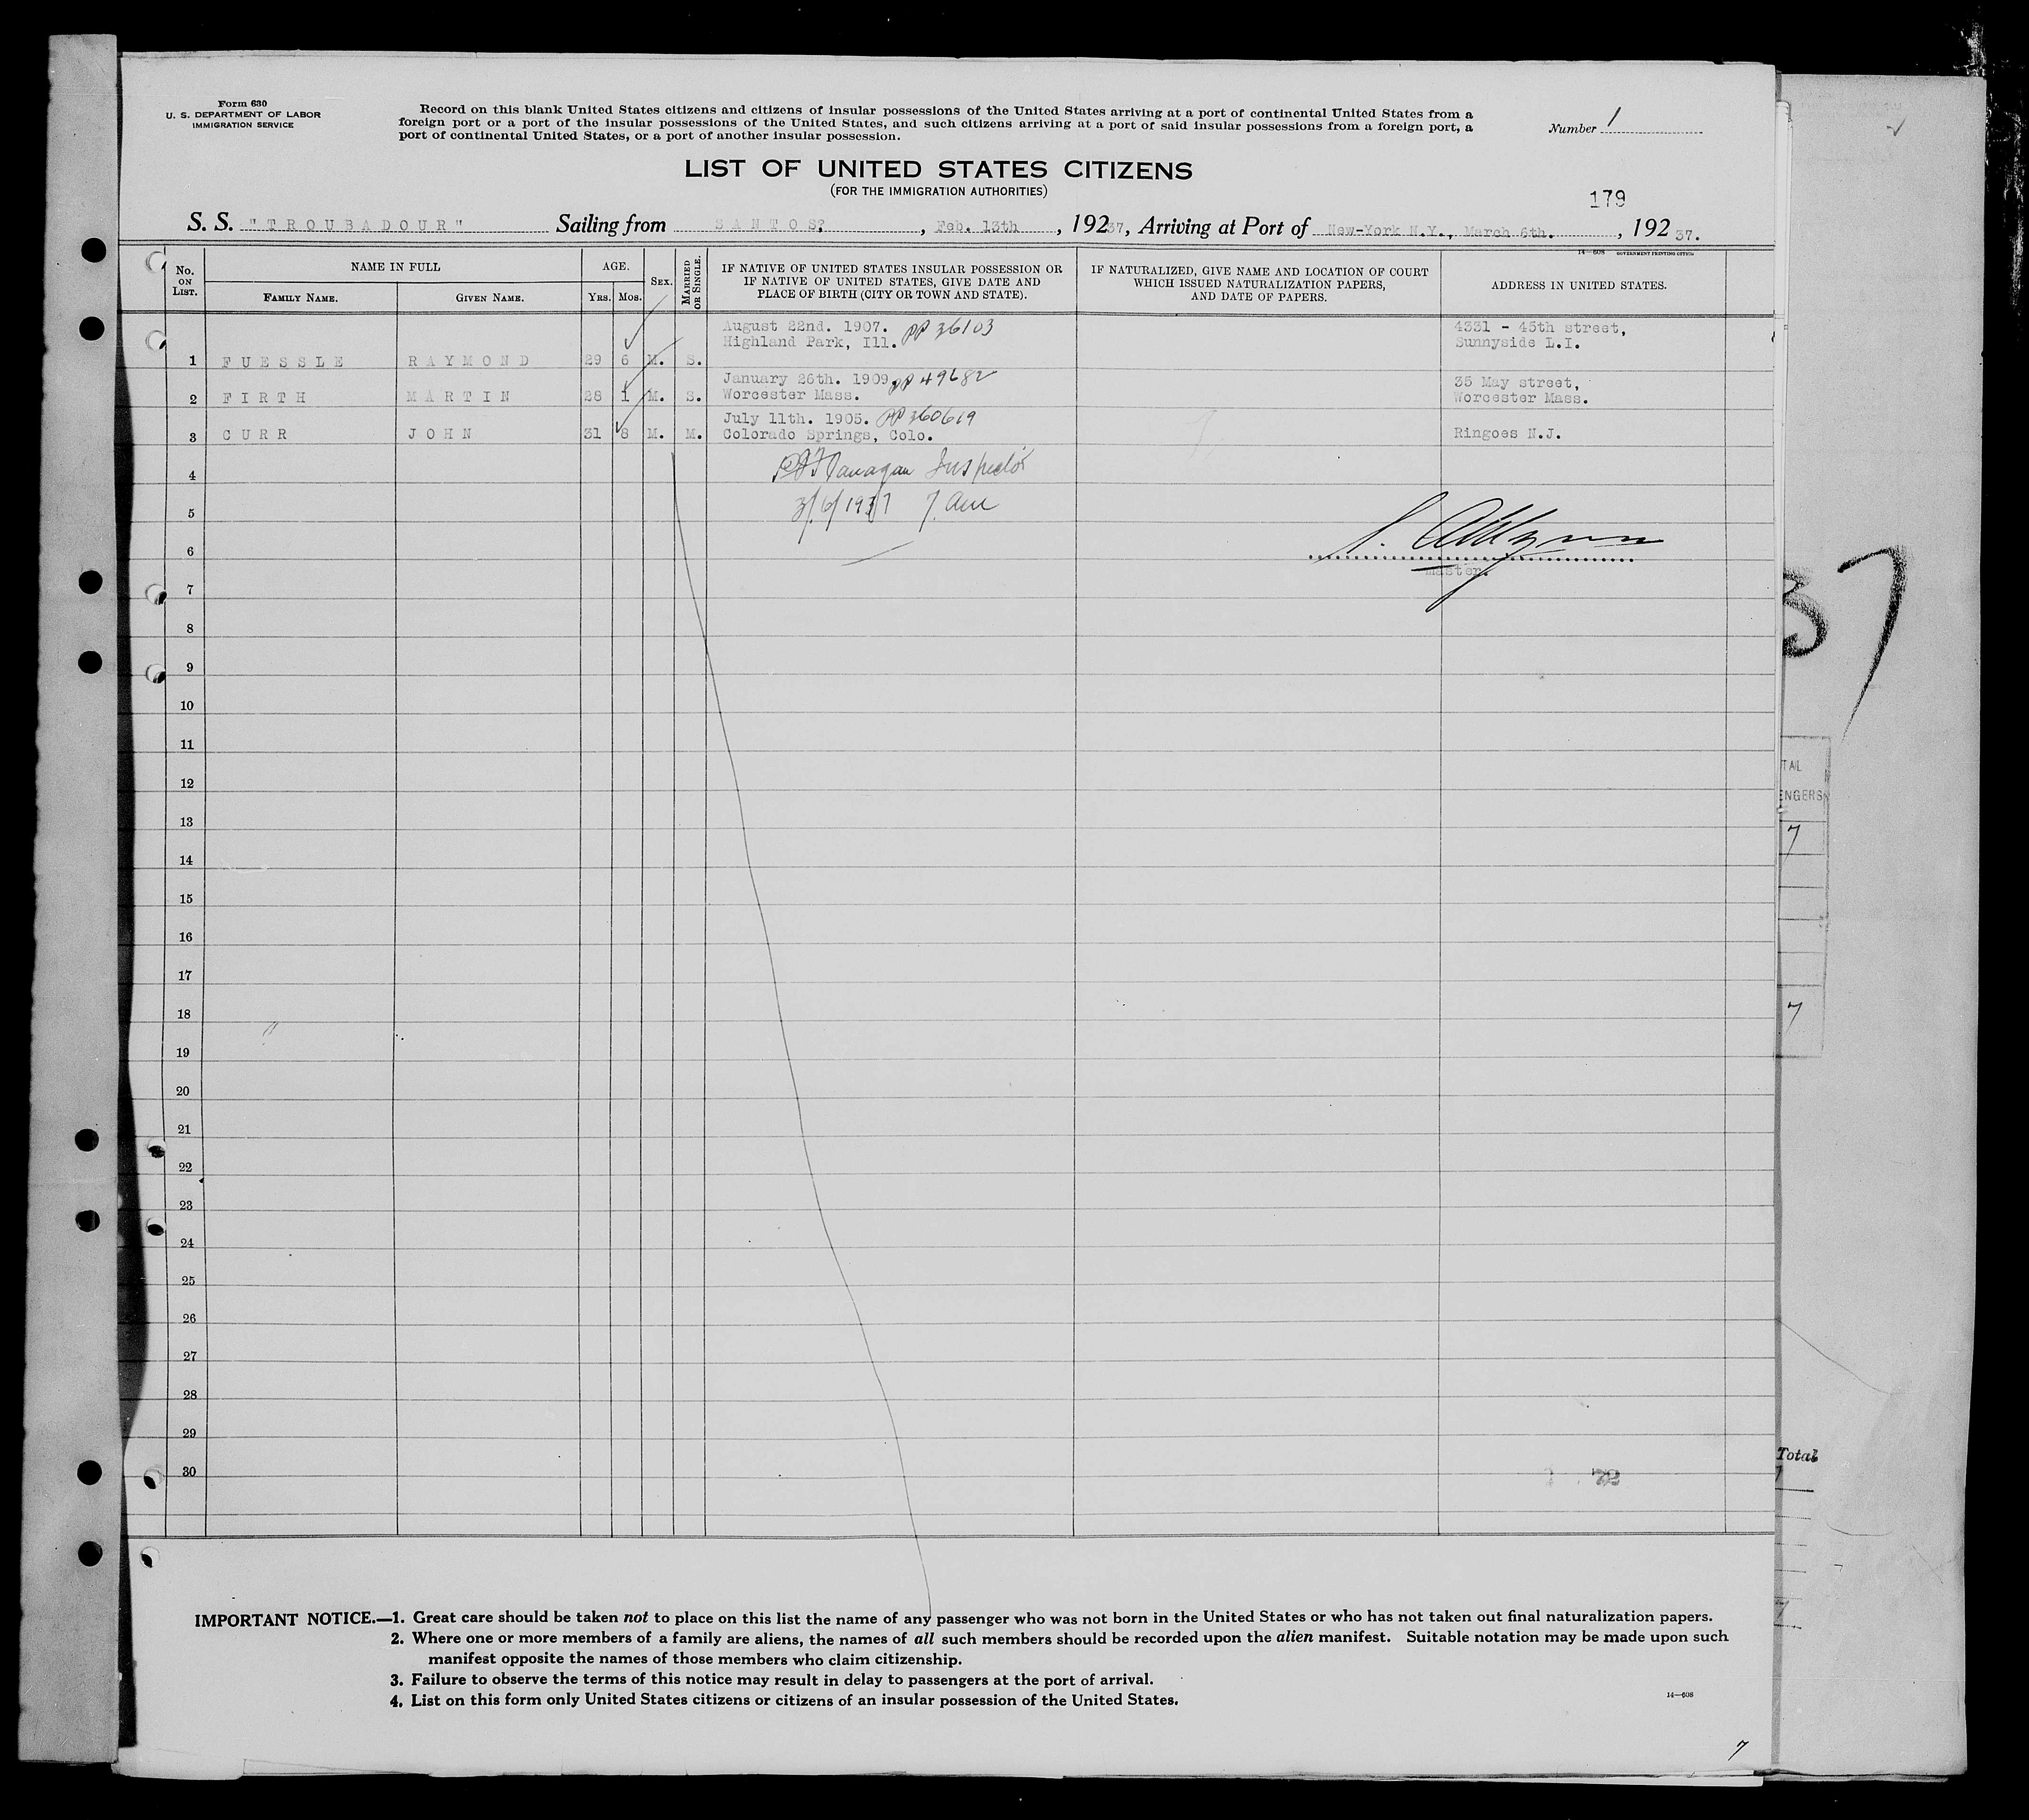 Form 630
U. S. DEPARTMENT OF LABOR
IMMIGRATION SERVICE
Record on this blank United States citizens and citizens of insular possessions of the United States arriving at a port of continental United States from a
foreign port or a port of the insular possessions of the United States, and such citizens arriving at a port of said insular possessions from a foreign port, a
port of continental United States, or a port of another insular possession.
Number 1
LIST OF UNITED STATES CITIZENS
(FOR THE IMMIGRATION AUTHORITIES)
179
S. S. "TROUBADOUR" Sailing from SANTOS, Feb. 13th, 19237, Arriving at Port of New-York N.Y., March 6th., 192 37.
14—608 GOVERNMENT PRINTING OFFICE
No. ON LIST.
NAME IN FULL
FAMILY NAME.
GIVEN NAME.
AGE.
YRS.
MOS.
SEX.
MARRIED OR SINGLE.
IF NATIVE OF UNITED STATES INSULAR POSSESSION OR
IF NATIVE OF UNITED STATES, GIVE DATE AND
PLACE OF BIRTH (CITY OR TOWN AND STATE).
IF NATURALIZED, GIVE NAME AND LOCATION OF COURT
WHICH ISSUED NATURALIZATION PAPERS,
AND DATE OF PAPERS.
ADDRESS IN UNITED STATES.
August 22nd. 1907. PP 36103 4331 - 45th street,
Highland Park, Ill. Sunnyside L.I.
1 FUESSLE RAYMOND 29 6 M. S.
January 26th. 1909 PP 49682 35 May street,
2 FIRTH MARTIN 28 1 M. S. Worcester Mass. Worcester Mass.
July 11th. 1905. PP 360619
3 CURR JOHN 31 8 M. M. Colorado Springs, Colo. Ringoes N.J.
4 Flanagan Inspector
5 3/6/1937 7 am
6
Master.
7
8
9
10
11
12
13
14
15
16
17
18
19
20
21
22
23
24
25
26
27
28
29
30
IMPORTANT NOTICE.—1. Great care should be taken not to place on this list the name of any passenger who was not born in the United States or who has not taken out final naturalization papers.
2. Where one or more members of a family are aliens, the names of all such members should be recorded upon the alien manifest. Suitable notation may be made upon such
manifest opposite the names of those members who claim citizenship.
3. Failure to observe the terms of this notice may result in delay to passengers at the port of arrival.
4. List on this form only United States citizens or citizens of an insular possession of the United States.
14—608
7
37
TAL
ENGERS
7
7
Total